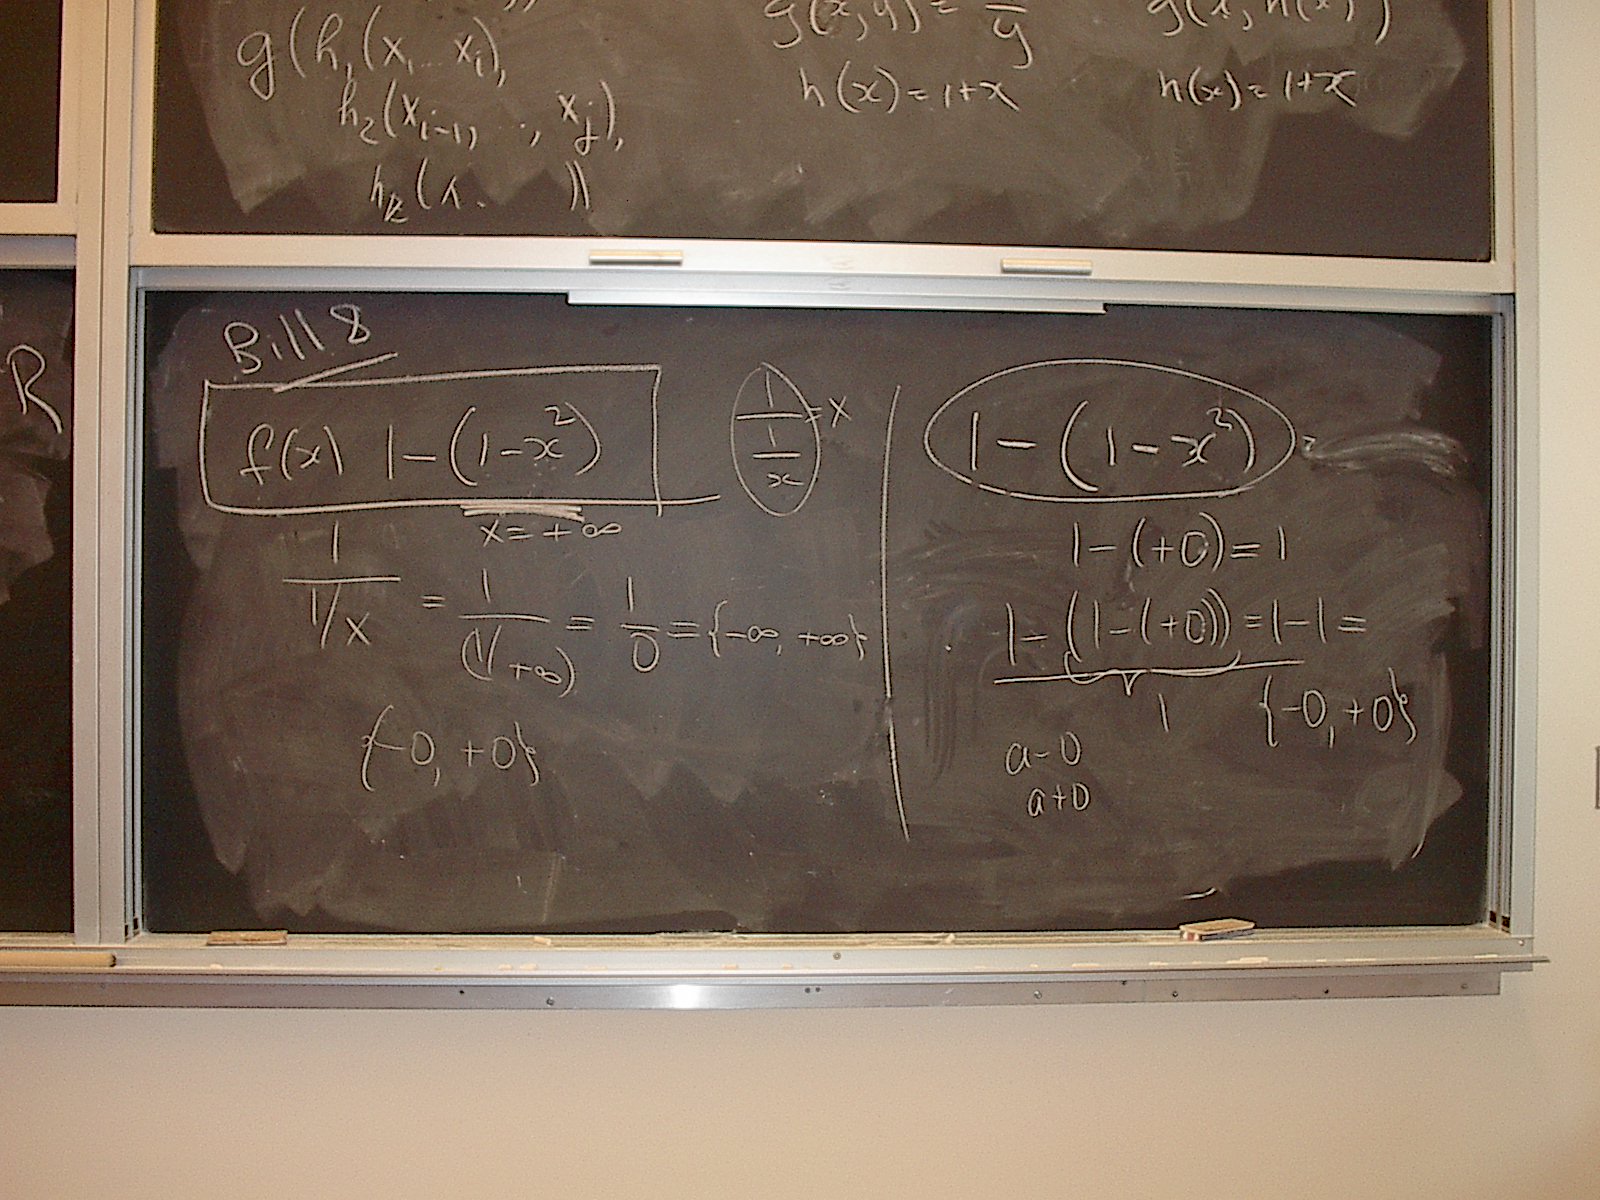 g(h₁(x₁ ... xᵢ),
h₂(xᵢ₋₁, . , xⱼ),
hₖ( ))
g(x,y) =
y
h(x) = 1+x
g(x, h(x))
h(x) = 1+x
R
Bill 8
f(x) 1-(1-x²)
x = +∞
1/(1/x) = 1/(1/+∞) = 1/0 = {-∞, +∞}
{-0, +0}
1/(1/x) = x
1-(1-x²) =
1-(+0) = 1
1-(1-(+0)) = 1-1 =
1
{-0, +0}
a-0
a+0